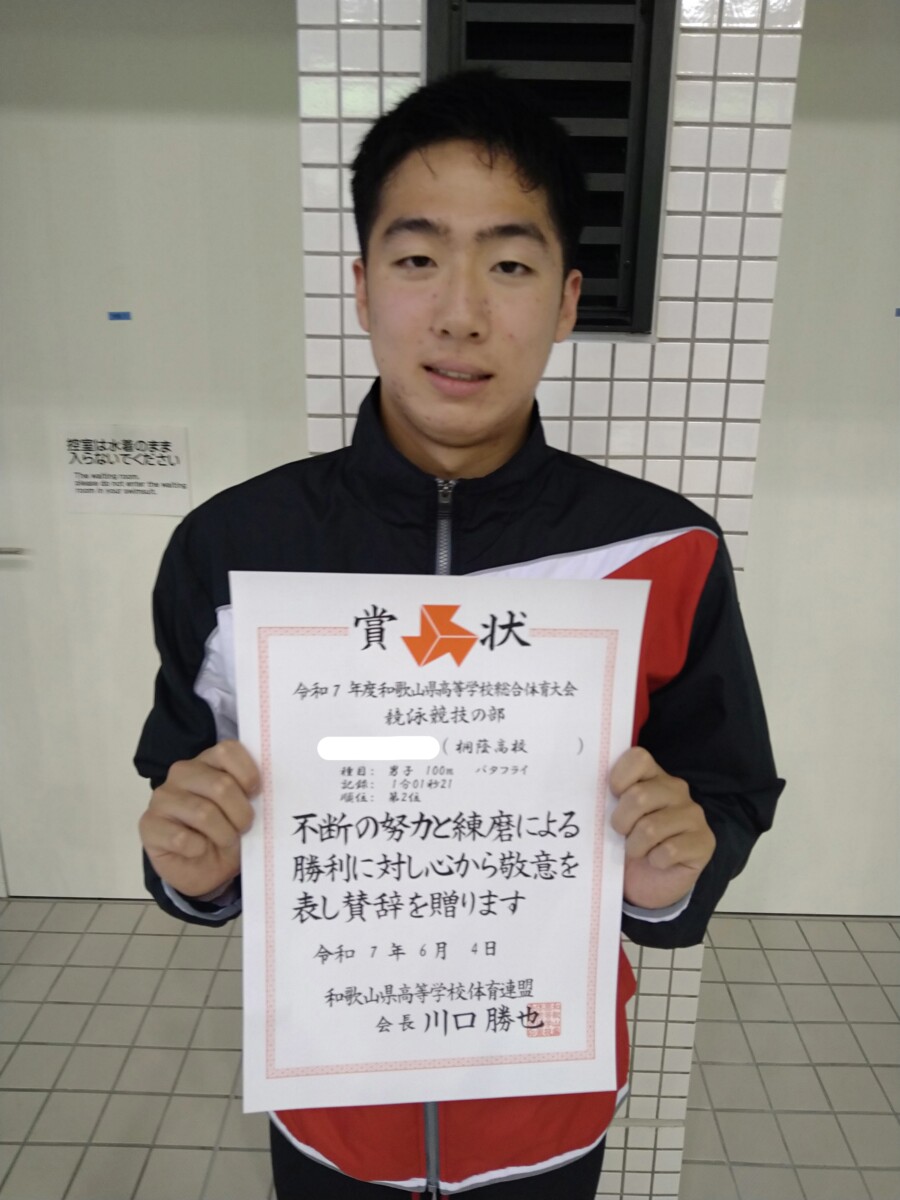 控室は水着のまま
入らないでください
The waiting room,
please do not enter the waiting
room in your swimsuit.
賞状
令和7年度和歌山県高等学校総合体育大会
競泳競技の部
(桐蔭高校)
種目: 男子 100m バタフライ
記録: 1分01秒21
順位: 第2位
不断の努力と練磨による
勝利に対し心から敬意を
表し賛辞を贈ります
令和 7年 6月 4日
和歌山県高等学校体育連盟
会長 川口勝也